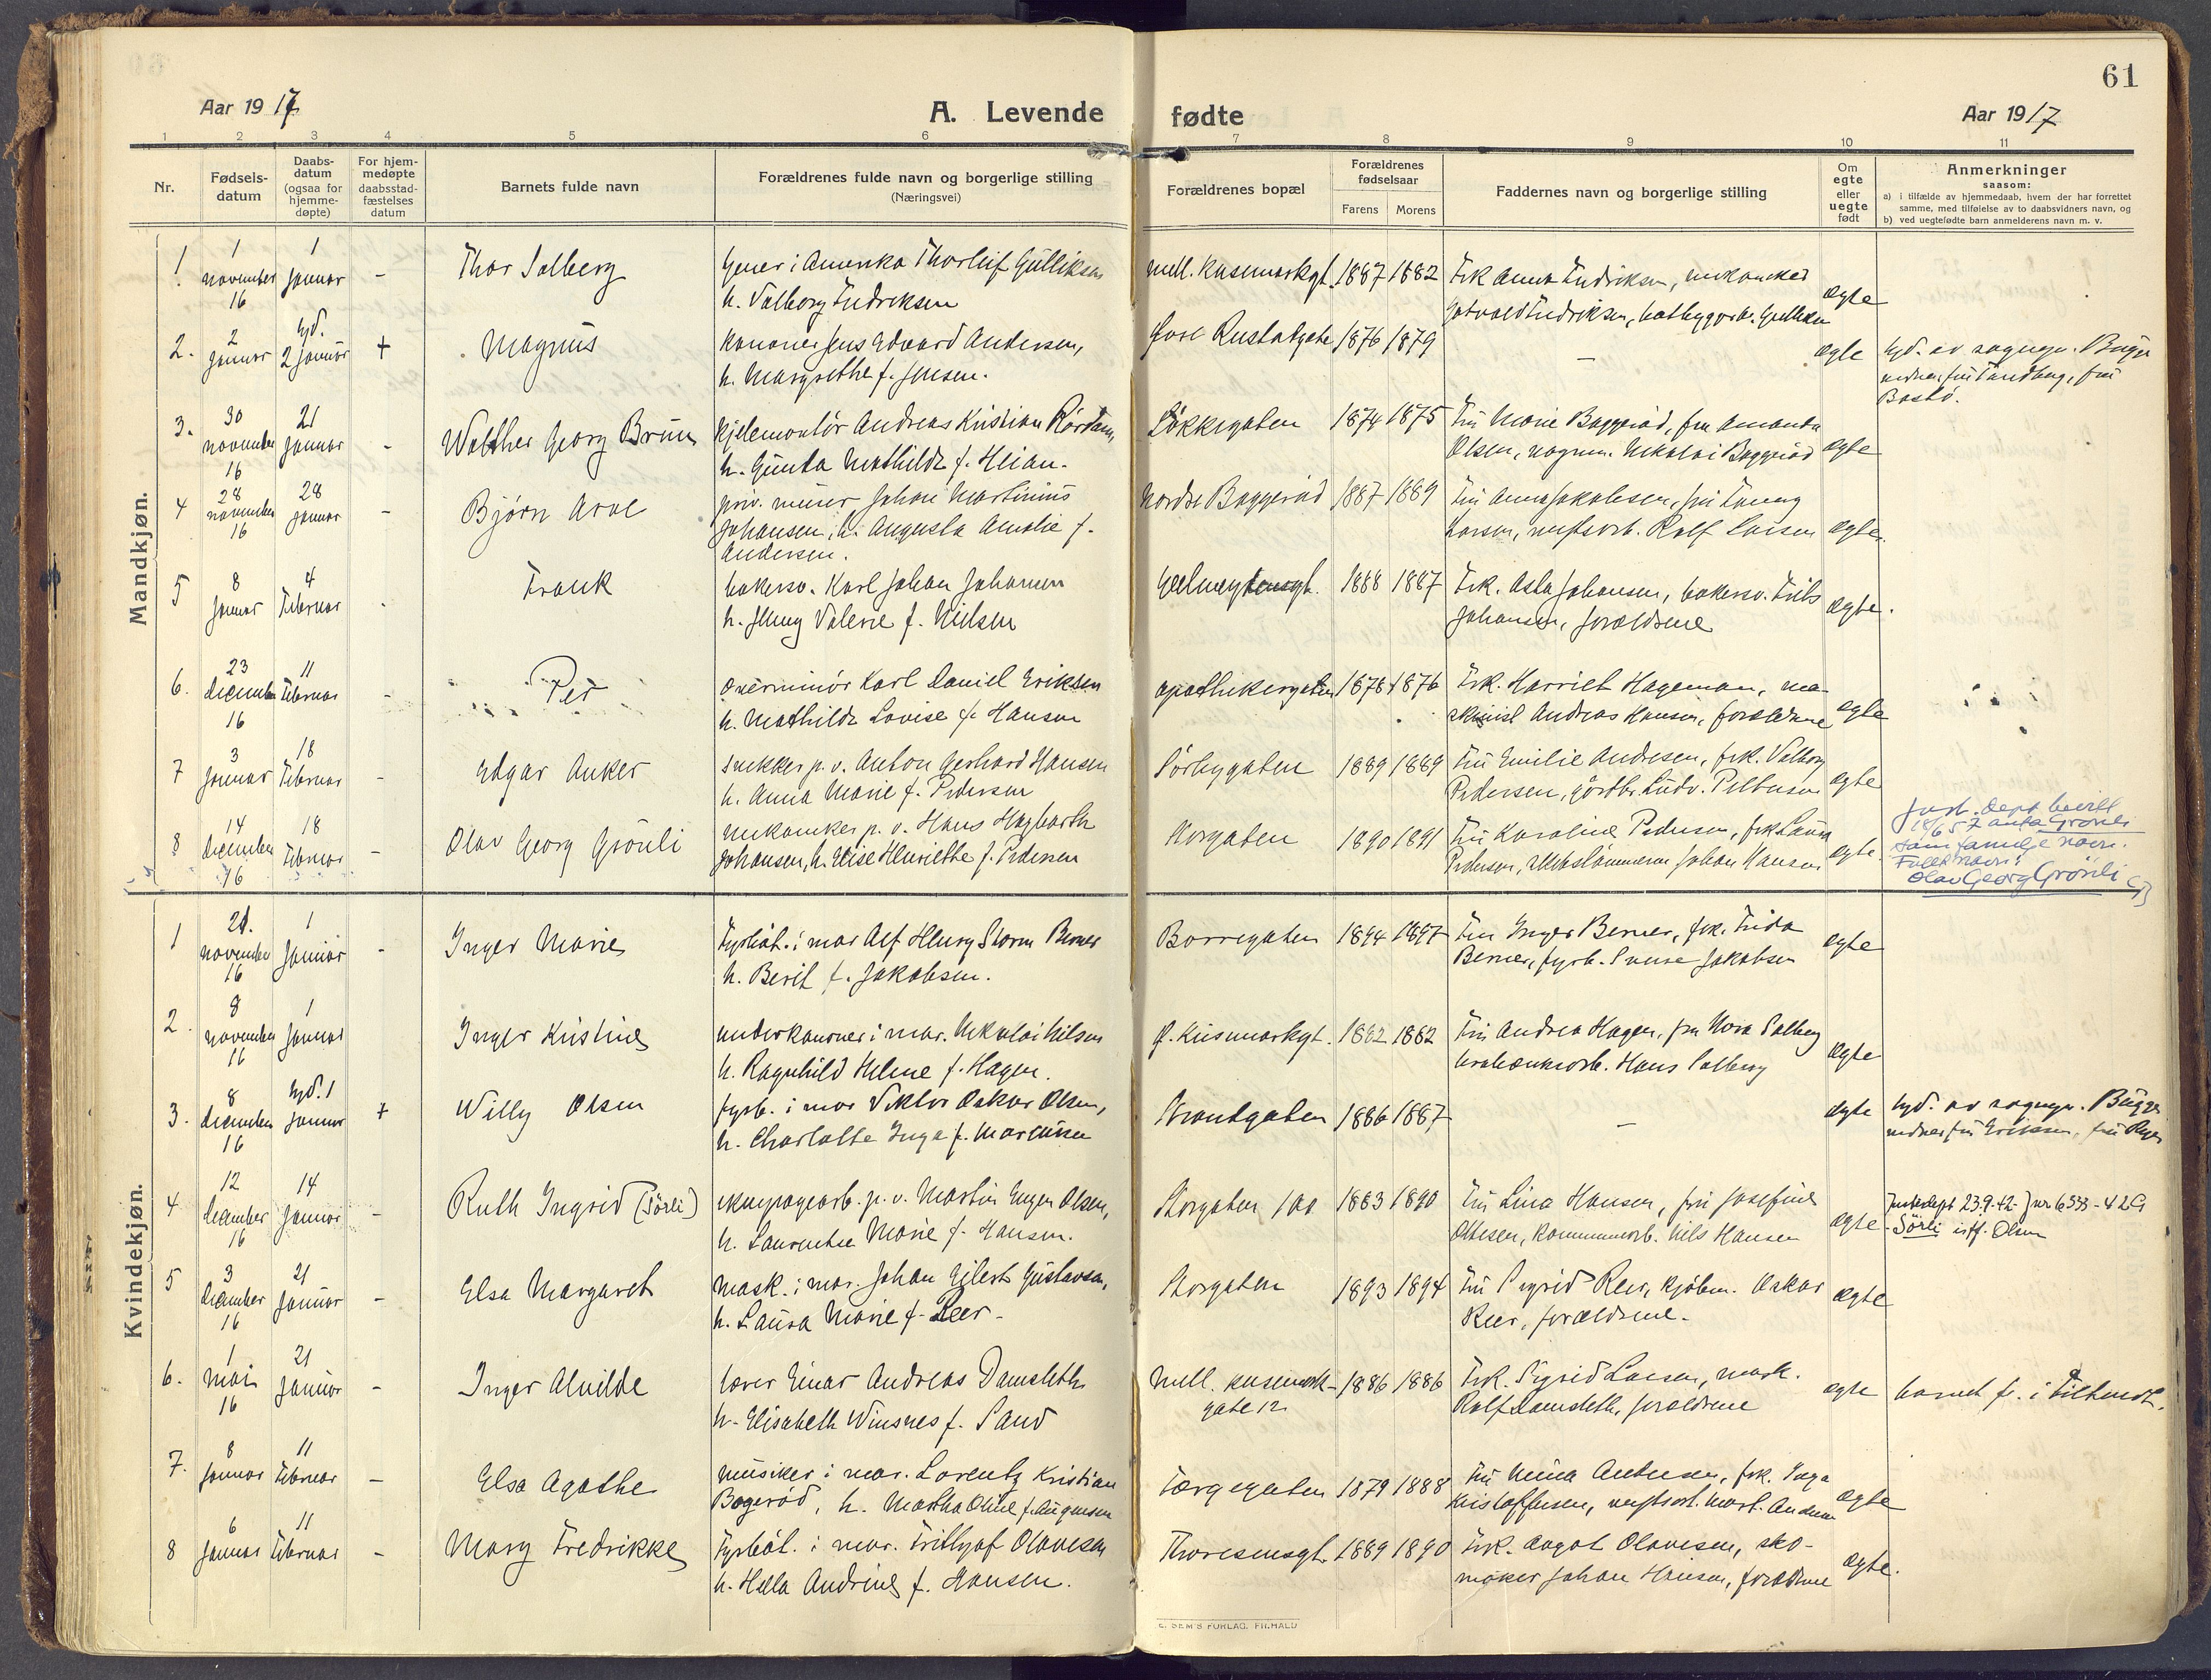 61
Aar 1917
A. Levende fødte
Aar 1917
1 2 3 4 5 6 7 8 9 10 11
Nr.
Fødsels-
datum
Daabs-
datum
(ogsaa for
hjemme-
døpte)
For hjem-
medøpte
daabsstad-
fæstelses
datum
Barnets fulde navn
Forældrenes fulde navn og borgerlige stilling
(Næringsvei)
Forældrenes bopæl
Forældrenes
fødselsaar
Farens Morens
Faddernes navn og borgerlige stilling
Om
egte
eller
uegte
født
Anmerkninger
saasom:
a) i tilfælde av hjemmedaab, hvem der har forrettet
samme, med tilføielse av to daabsvidners navn, og
b) ved uegtefødte barn anmelderens navn m. v.
Mandkjøn.
1. 1 november 16 1 januar - Thor Solberg
i Amerika Thorleif Gulliksen
h. Valborg Fredriksen
mell. kusemarkgt. 1887 1882
Frk Anna Fredriksen, mekaniker
Fredriksen, baatbygger
ægte
2. 2 januar hjd. 2 januar + Magnus
kanoner Jens Edvard Andersen,
h. Margrethe f. Jensen.
1876 1879 - ægte
hjd. av sogнepr. Bugge
3. 30 november 16 21 januar - Walther Georg Bruun
kjelemontör Andreas Kristian Rördam,
h. Gunda Mathilde f. Heian.
Løkkegaten 1874 1875
Fru Marie Baggerød, fru Amanda
Olsen, Nikolai Baggerød
ægte
4 28 november 16 28 januar - Bjørn Arve
priv. murer Johan Martinius
Johansen, h. Augusta Amalie f.
Andersen.
Nordre Baggerød 1887 1889
Fru Anna Jakobsen, fru Fanny
Larsen, verftsarb. Rolf Larsen
ægte
5 8 januar 4 Februar - Frank
bakersv. Karl Johan Johansen
h. Jenny Valerie f. Nielsen
1888 1887
Frk. Asta Johansen, bakersv. Frits
Johansen, forældrene
ægte.
6. 23 december 16 11 Februar - Per
overminör Karl Daniel Eriksen
h. Mathilde Lovise f. Hansen
apothekergaten 1878 1876
Frk. Harriet Hageman, ma-
skinist Andreas Hansen, forældrene
ægte
7 3 januar 18 Februar - Edgar Anker
snekker p. v. Anton Gerhard Hansen
h. Anna Marie f. Pedersen
Sørbygaten 1889 1889
Fru Emilie Andresen, frk. Valborg
Pedersen, Ludv. Pettersen
ægte
8 14 december 16 18 Februar - Olav Georg Grönli
mekaniker p. v. Hans Hagbarth
Johansen, h. Elise Henriethe f. Pedersen
Storgaten 1890 1891
Fru Karoline Pedersen, frk Laura
Pedersen, Johan Hansen
ægte.
Just. Dept. bevill.
18/6 57 anta Grönli
som familje navn.
Fulle navn:
Olav Georg Grönli
Kvindekjøn.
1 21. november 16 1 Januar - Inger Marie
Fyrböt. i mar Alf Henry Storm Berner
h. Berit f. Jakobsen.
Borregaten 1894 1897
Fru Inger Berner, frk. Frida
Berner, fyrb. Sverre Jakobsen
ægte
2. 9 november 16 1 Januar Inger Kristine
underkanoner i mar. Nikolai Nilsen
h. Ragnhild Helene f. Hagen.
1882 1882
Fru Andrea Hagen, fru Nora Solberg
Hans Solberg
ægte
3. 8 december 16 hjd. 1 januar + Willy Olsen
fyrb. i mar Viktor Oskar Olsen,
h. Charlotte Inga f.
Strandgaten 1886 1887 - ægte
hjd. av sognepr. Bugge
4 12 december 16 14 januar - Ruth Ingrid (Sörli)
ekvipagearb. p. v. Martin Eugen Olsen,
h. Laurentze Marie f. Hansen.
Storgaten 100 1883 1890
Fru Lina Hansen, fru Josefine
Ottesen, kommunearb. Nils Hansen
ægte
Justisdept 23.9.42 Jnr 6533-42 G
Sörli istf. Olsen
5 3 december 16 21 januar - Elsa Margaret
Mask. i mar. Johan Eilert Gustavsen,
h. Laura Marie f. Reer-
Storgaten 1893 1894
Fru Sigrid Reer, kjøbm. Oskar
Reer, forældrene.
ægte
6. 1 Mai 16 21 januar - Inger Alvilde
lærer Einar Andreas Damsleth
h. Elisabeth Winsnes f. Sand
Mell. kusemark-
gate 12 1886 1886
Frk. Sigrid Larsen, mask.
Rolf Damsleth, forældrene
ægte
barnet f. i
7. 8 januar 11 Februar - Elsa Agathe
musiker i mar. Lorentz Kristian
Bagerød, h. Martha Oline f.
Torgegaten 1879 1888
Fru Mina Andersen, frk. Inga
Kristoffersen, verftsarb.
ægte
8 6 januar 11 Februar - Mary Fredrikke
Fyrböt. i mar. Frithjof Olavesen
h. Hella Andrine f. Hansen.
Thoresensgt. 1889 1890
Frk. Aagot Olavesen, sko-
maker Johan Hansen, forældrene
ægte.
E. SEM'S FORLAG. FR.HALD